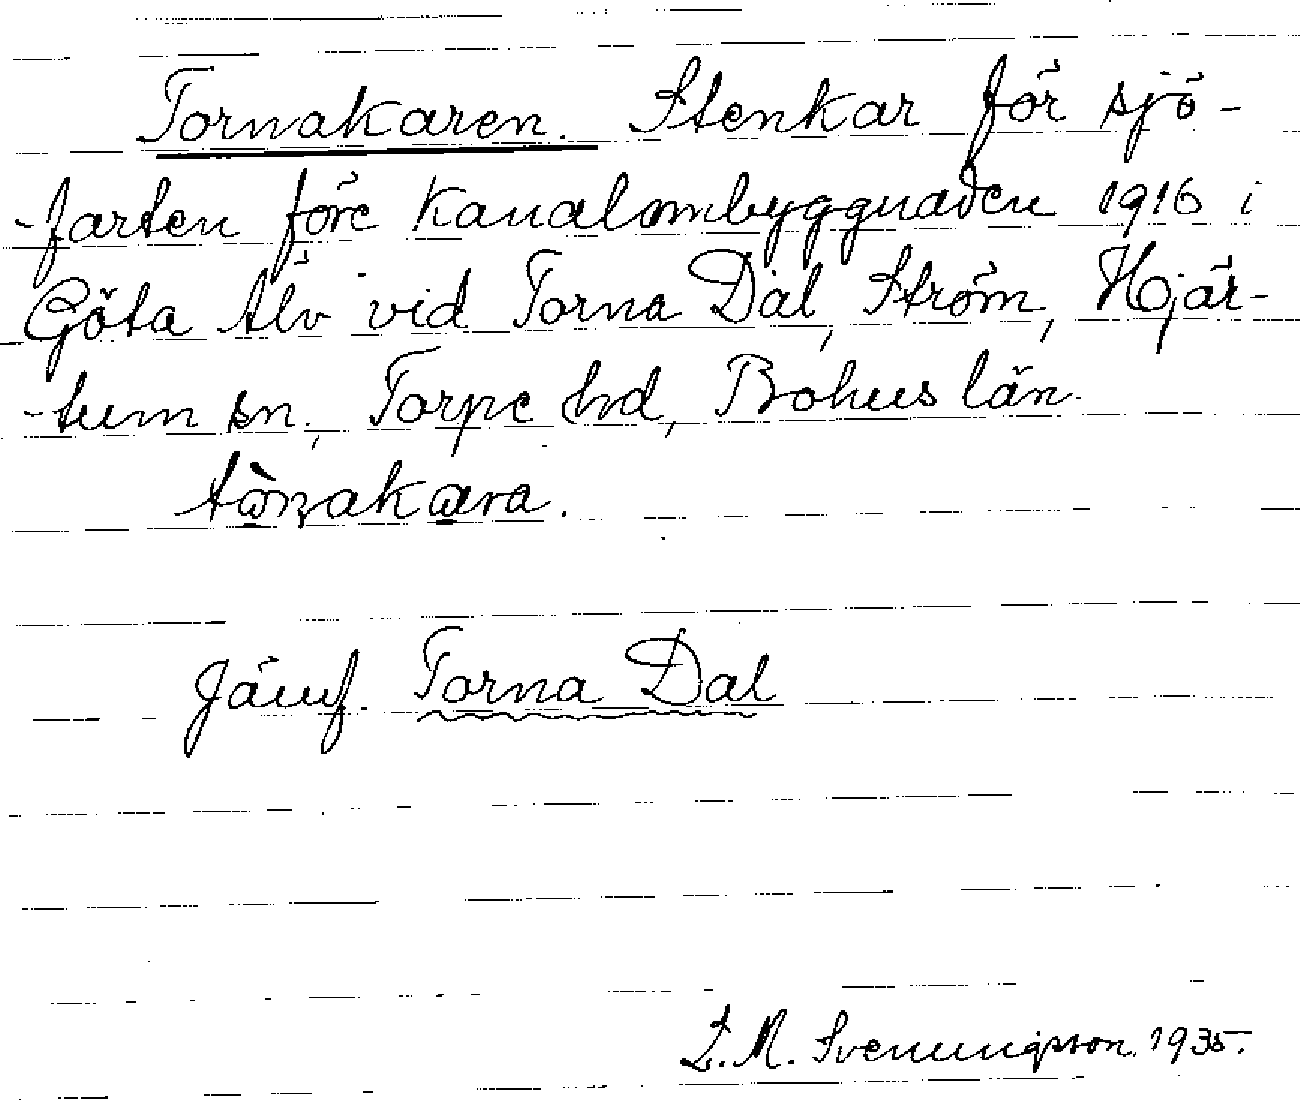 Tornakaren. Stenkar för sjö-
-farten före kanalombyggnaden 1916 i
Göta älv vid Torna Dal, Ström, Hjär-
-tum sn., Torpe hd, Bohus län.
Järnf. Torna Dal
L. M. Svenungsson 1935.